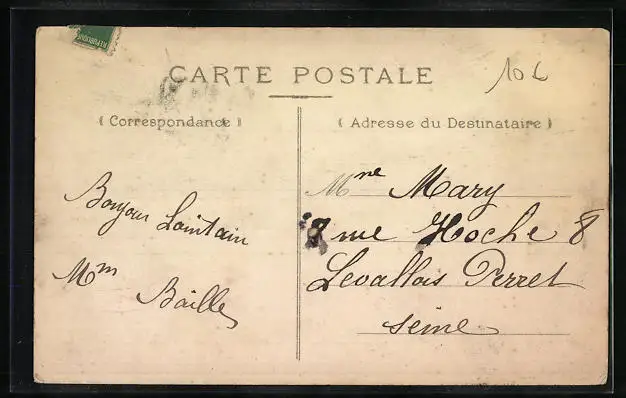 REPUBLIQUE
CARTE POSTALE
10 €
( Correspondance )
( Adresse du Destinataire )
Bonjour Lointain
Mm Bailley
Mme Mary
8 rue Hoche 8
Levallois Perret
Seine